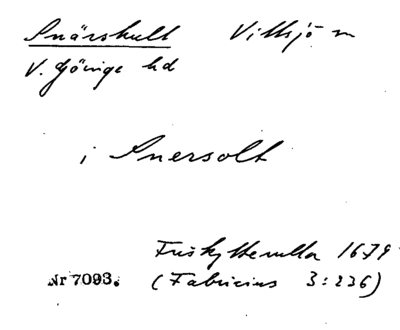 Snärshult Vittsjö sn
V. Göinge hd
i Snersolt
Friskytterulla 1679
Nr 7093. (Fabricius 3:236)